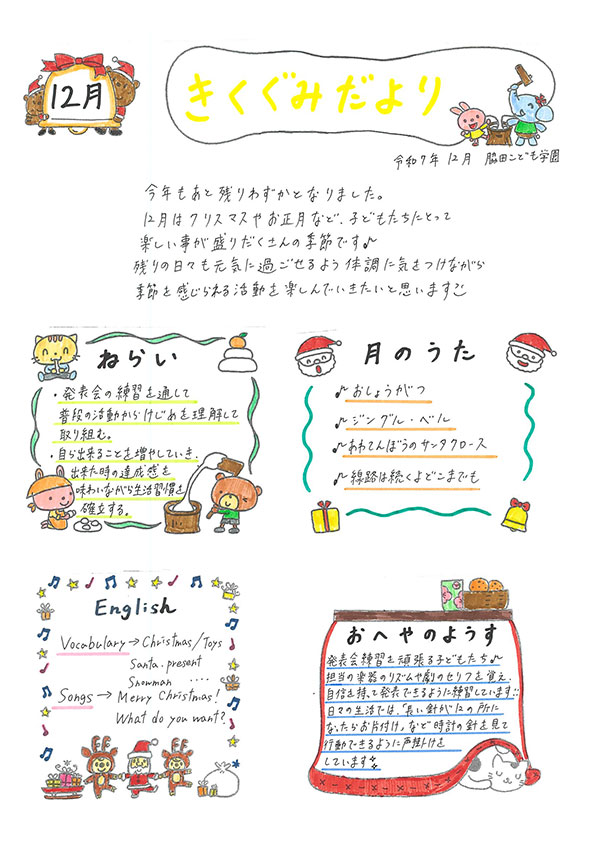 12月
きくぐみだより
令和7年 12月 脇田こども学園
今年もあと残りわずかとなりました。
12月はクリスマスやお正月など、子どもたちにとって
楽しい事が盛りだくさんの季節です♪
残りの日々も元気に過ごせるよう体調に気をつけながら
季節を感じられる活動を楽しんでいきたいと思います
ねらい
・発表会の練習を通して
普段の活動からけじめを理解して
取り組む。
・自ら出来ることを増やしていき、
出来た時の達成感を
味わいながら生活習慣を
確立する。
月のうた
♪おしょうがつ
♪ジングル・ベル
♪あわてんぼうのサンタクロース
♪線路は続くよどこまでも
English
Vocabulary→Christmas/Toys
Santa.present
Snowman ....
Songs→Merry Christmas!
What do you want?
おへやのようす
発表会練習を頑張る子どもたち♪
担当の楽器のリズムや劇のセリフを覚え、
自信を持って発表できるように練習しています
日々の生活では、「長い針が12の所に
なったらお片付け」など時計の針を見て
行動できるように声掛けを
しています